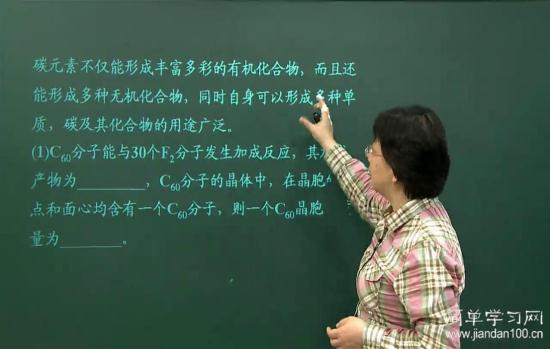 碳元素不仅能形成丰富多彩的有机化合物，而且还
能形成多种无机化合物，同时自身可以形成多种单
质，碳及其化合物的用途广泛。
(1)C₆₀分子能与30个F₂分子发生加成反应，其
产物为________，C₆₀分子的晶体中，在晶胞
点和面心均含有一个C₆₀分子，则一个C₆₀晶胞
量为________。
简单学习网
www.jiandan100.cn